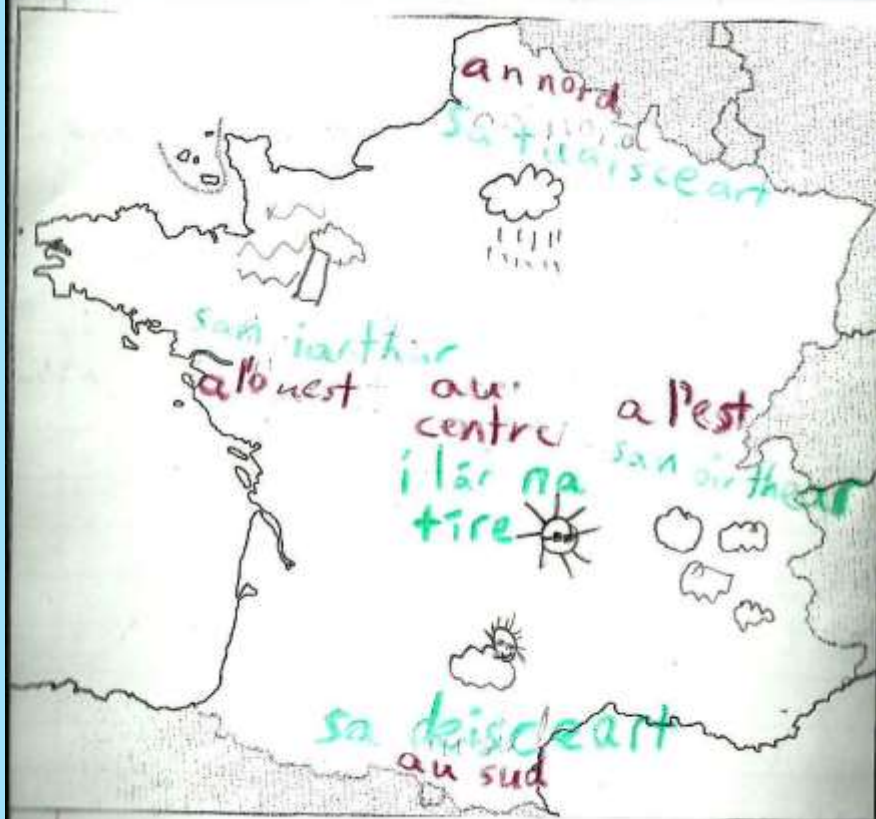 an nord
sa tuaisceart
san iarthar
a l'ouest
au
centre
i lár na
tíre
a l'est
san oirthear
sa deisceart
au sud